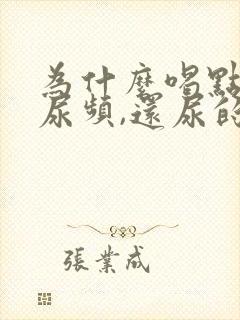 為什麼喝點
尿頻,還尿的
張業成